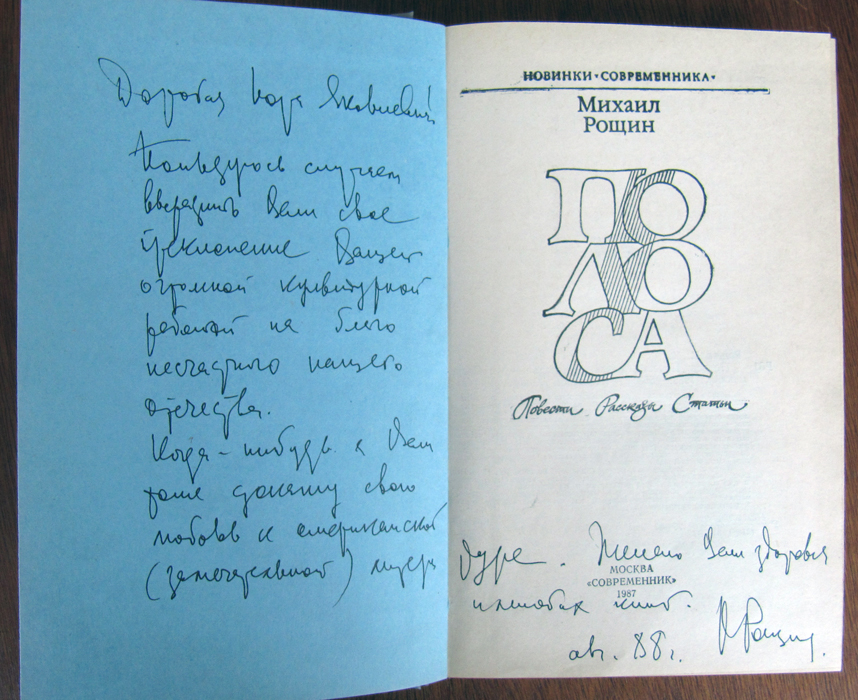 Дорогая Нора Яковлевна!
Пользуюсь случаем
Вам свое
преклонение Вашей
огромной культурной
работой на благо
несчастного нашего
отечества.
Когда-нибудь я Вам
тоже докажу свою
любовь к американской
(замечательной)
НОВИНКИ•СОВРЕМЕННИКА•
Михаил
Рощин
ПО
ЛО
СА
Повести Рассказы Статьи
Желаю Вам здоровья
МОСКВА
«СОВРЕМЕННИК»
1987
и новых книг.
авг. 88 г. М Рощин.